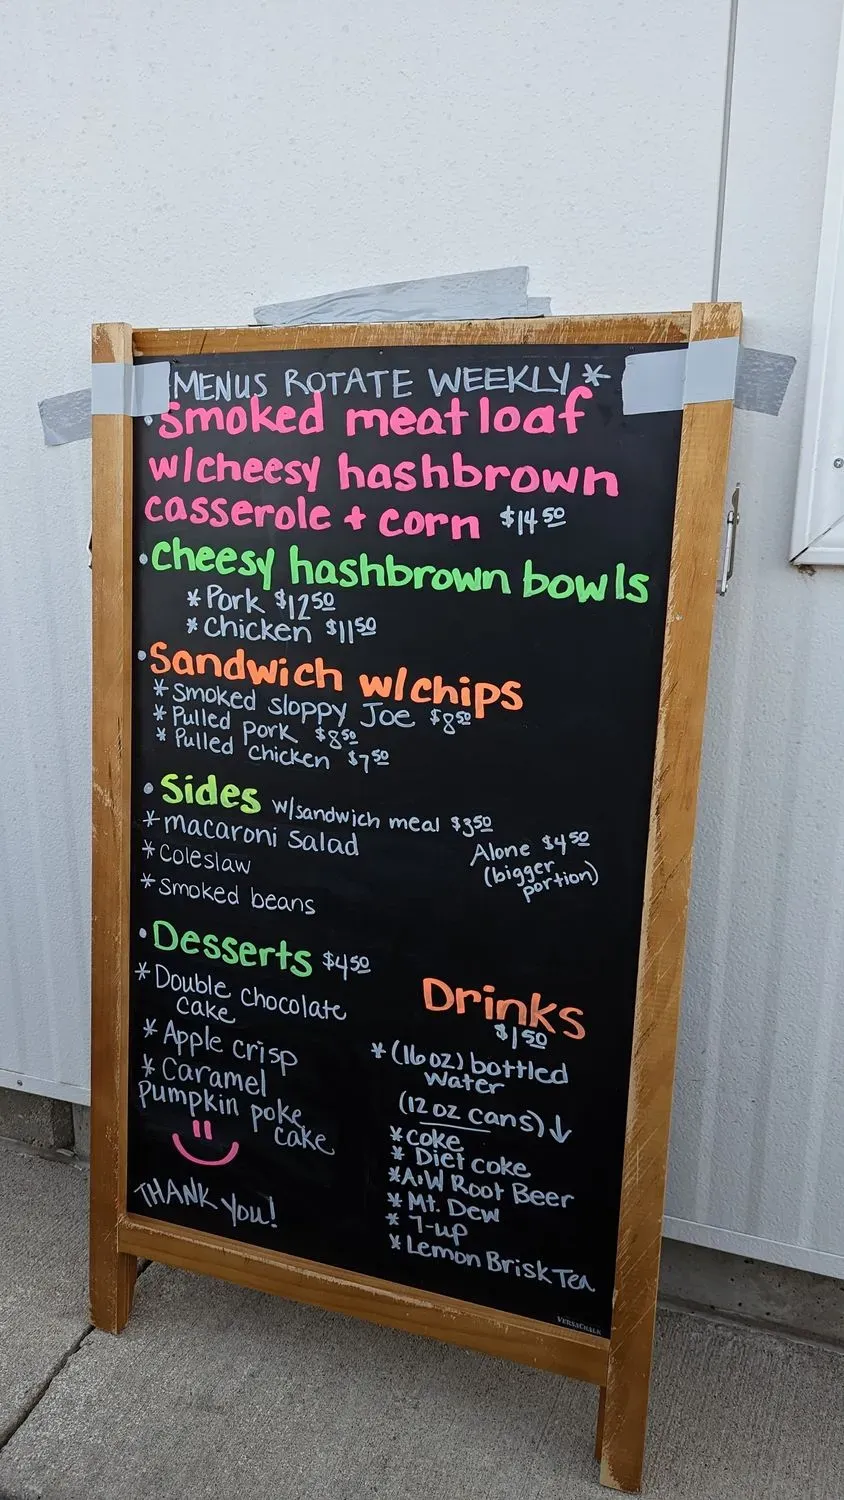 MENUS ROTATE WEEKLY *
• Smoked meatloaf
w/cheesy hashbrown
casserole + corn $14 50
• Cheesy hashbrown bowls
* Pork $12 50
* Chicken $11 50
• Sandwich w/chips
* Smoked sloppy Joe $8 50
* Pulled Pork $8 50
* Pulled Chicken $7 50
• Sides w/sandwich meal $3 50
* macaroni Salad
* Coleslaw
* Smoked beans
Alone $4 50
(bigger
portion)
• Desserts $4 50
* Double chocolate
cake
* Apple crisp
* Caramel
Pumpkin poke
cake
THANK YOU!
Drinks
$1 50
* (16 oz) bottled
water
(12 oz cans) ↓
* coke
* Diet coke
* A&W Root Beer
* Mt. Dew
* 7-up
* Lemon Brisk Tea
VERSACHALK